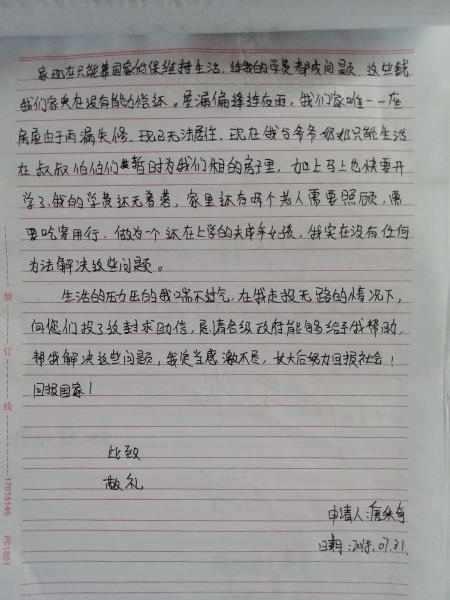 家现在只能靠国家低保维持生活,连我的学费都成问题,这些钱
我们家实在没有能力偿还。屋漏偏逢连夜雨,我们家唯一一座
房屋由于雨漏失修,现已无法居住,现在我与爷爷奶奶只能生活
在叔叔伯伯们暂时为我们租的房子里,加上马上也快要开
学了,我的学费还无着落,家里还有两个老人需要照顾,需
要吃穿用行,做为一个还在上学的未成年女孩,我实在没有任何
办法解决这些问题。
生活的压力压的我喘不过气,在我走投无路的情况下,
向您们投了这封求助信,恳请各级政府能够给予我帮助,
帮我解决这些问题,我定当感激不尽,长大后努力回报社会!
回报国家!
此致
敬礼
申请人:唐
日期:2018.07.31
装
订
线
17015146
PC1801